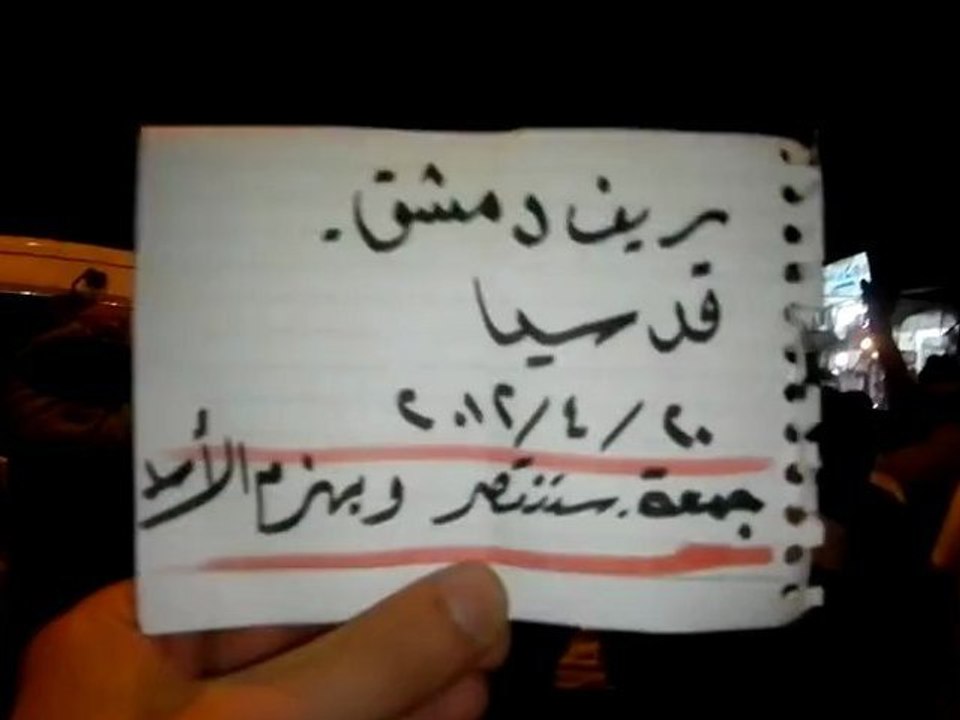 ريف دمشق.
قدسيا
٢٠/٤/٢٠١٢
جمعة سننتصر ويهزم الأسد